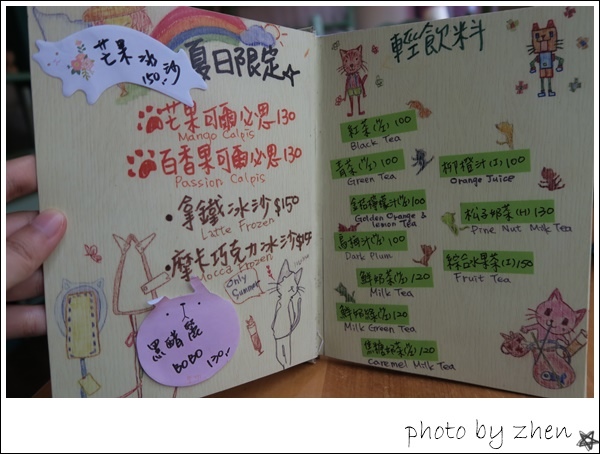 芒果冰沙
150.
夏日限定
芒果可爾必思 130
Mango Calpis
百香果可爾必思 130
Passion Calpis
拿鐵冰沙 $150
Latte Frozen
摩卡巧克力冰沙 $15
Mocca Frozen
Only
Summer
黑醋
BOBO 130.
輕飲料
紅茶 100
Black Tea
青茶 100
Green Tea
100
Golden Orange &
lemon Tea
烏梅汁 100
Dark Plum
鮮奶茶 120
Milk Tea
鮮奶綠 120
Milk Green Tea
焦糖奶茶 120
Caramel Milk Tea
柳橙汁(I) 100
Orange Juice
松子奶茶(H) 130
Pine Nut Milk Tea
綜合水果茶(I) 150
Fruit Tea
photo by zhen